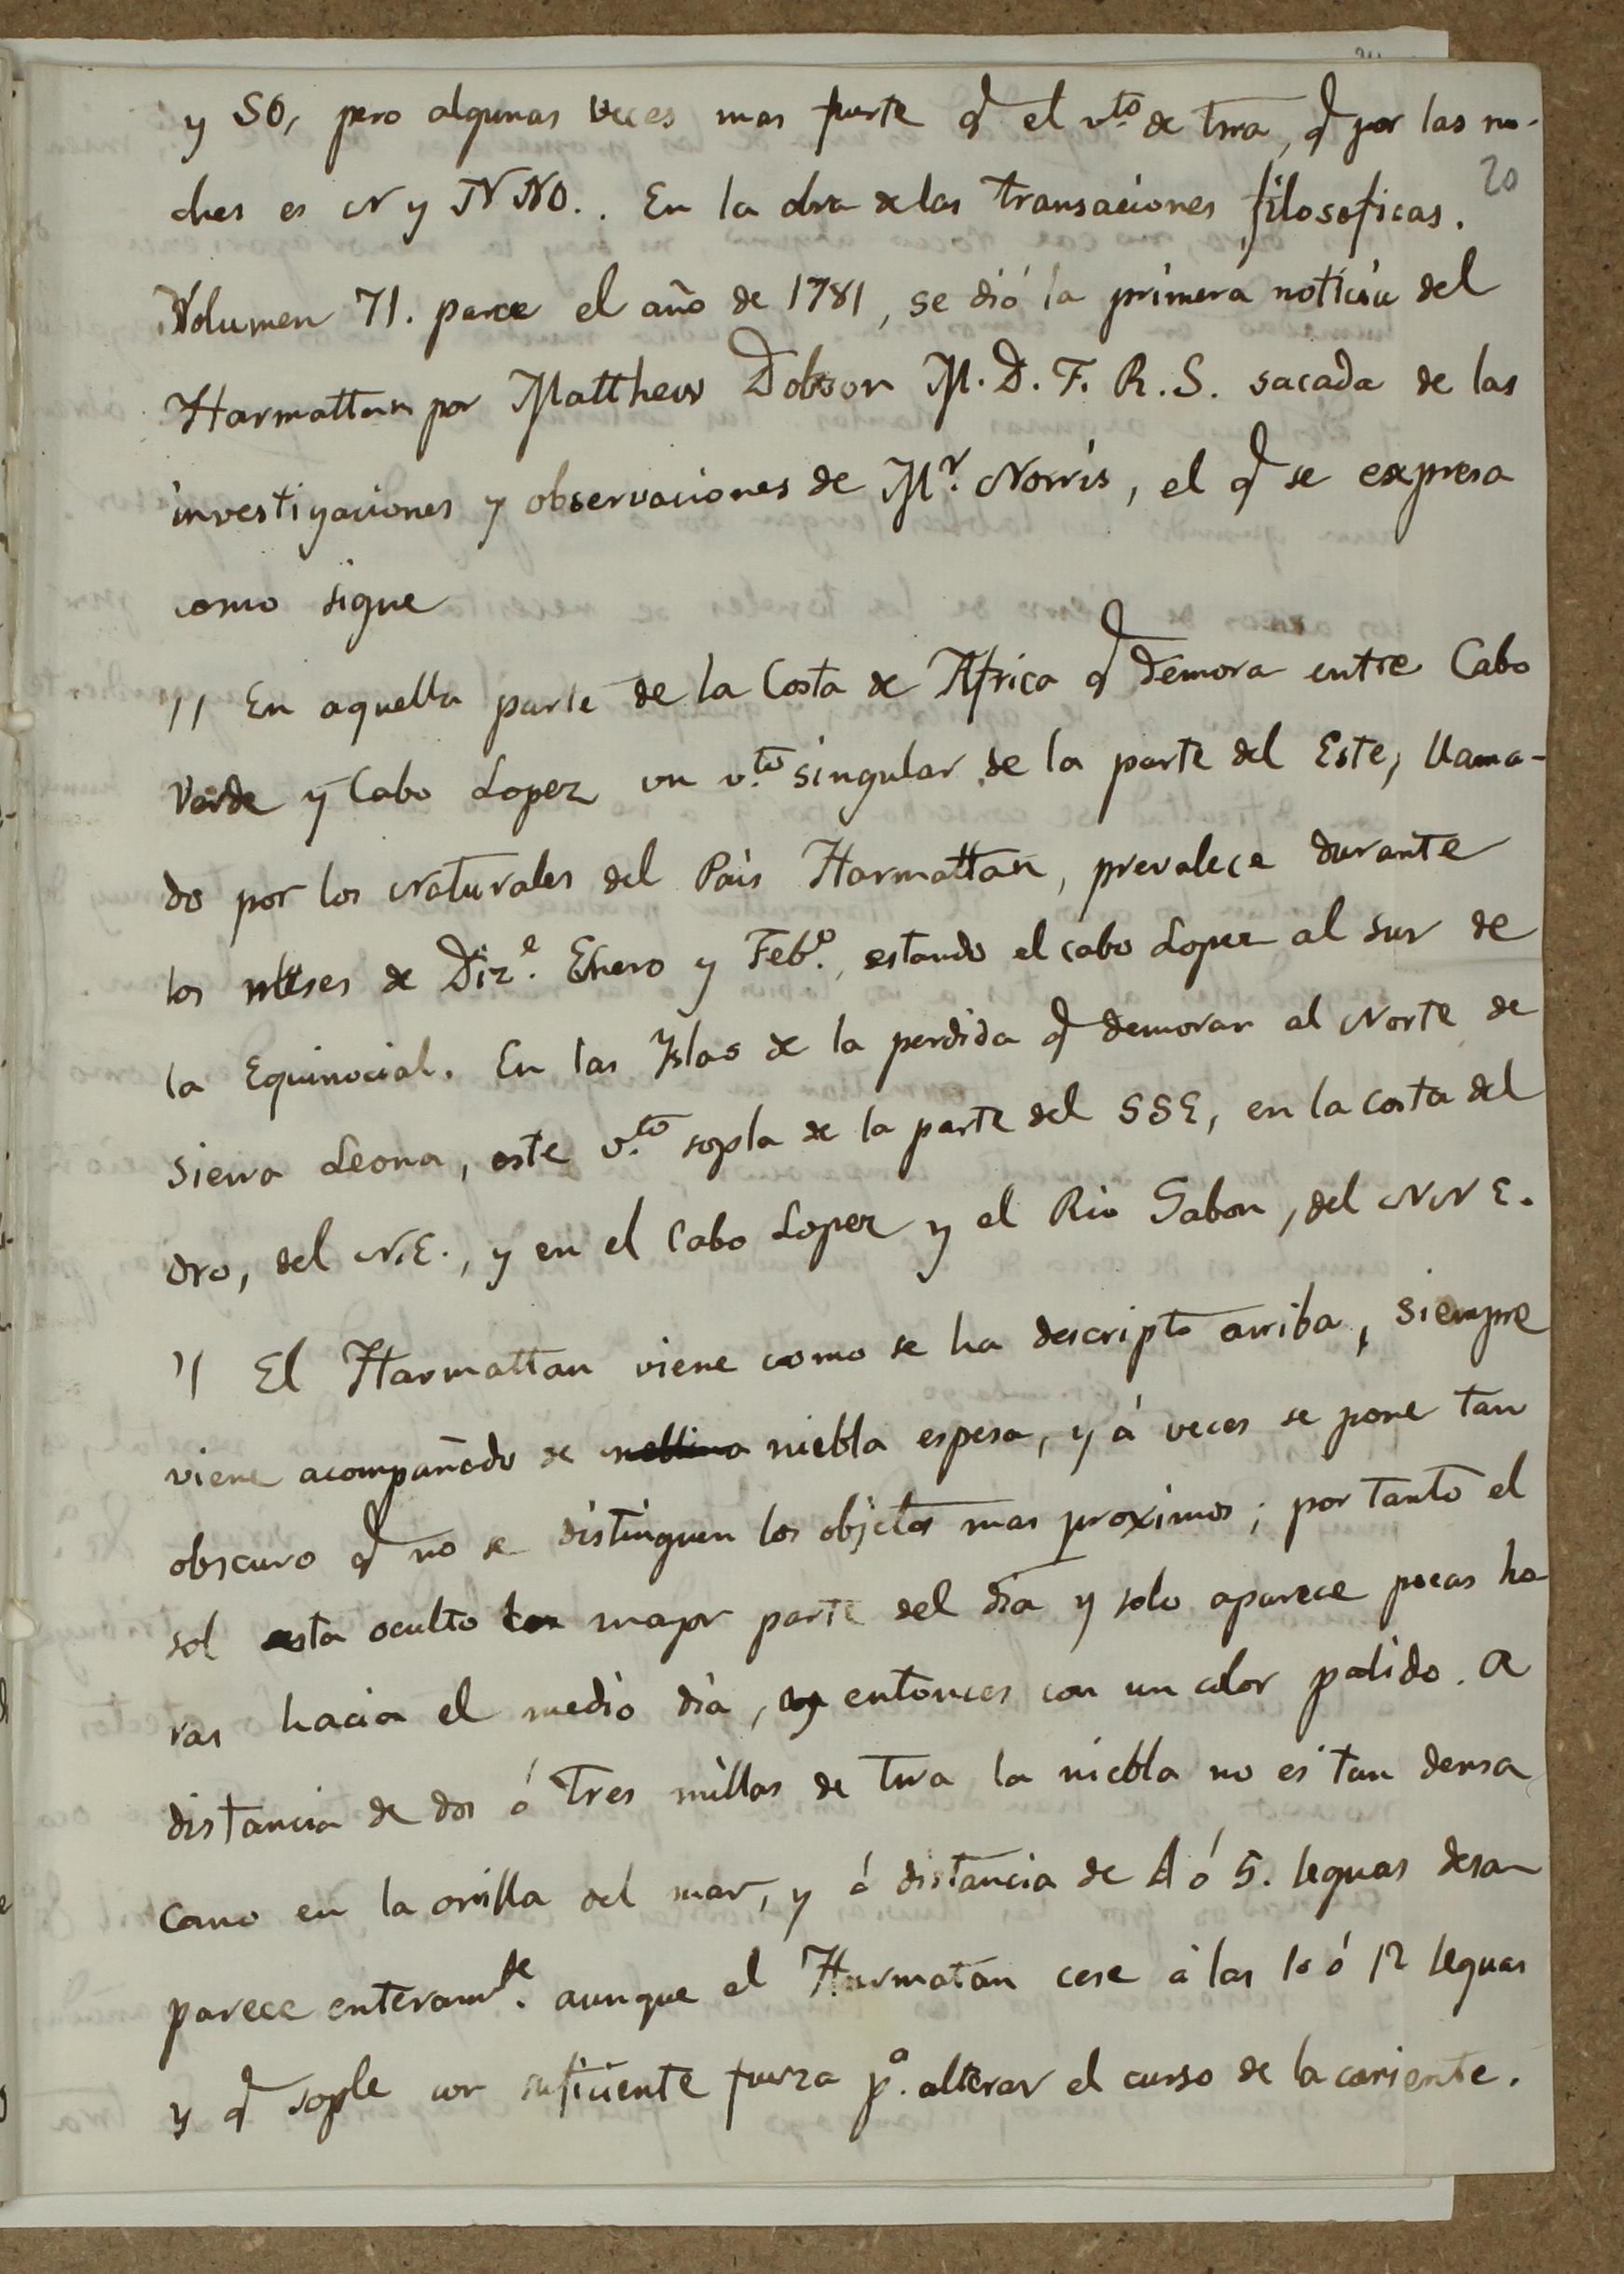 y SO, pero algunas veces mas fuerte q̃ el v.to de trra, q̃ por las no-
ches es N y NNO.. En la obra de las transaciones filosoficas.
20
Volumen 71. parece el año de 1781, se dió la primera noticia del
Harmattan por Matthew Dobson M.D.F.R.S. sacada de las
investigaciones y observaciones de Mr. Norris, el q̃ se expresa
como sigue
11 En aquella parte de la Costa de Africa q̃ demora entre Cabo
Verde y Cabo Lopez un v.to singular de la parte del Este, llama-
do por los Naturales del Pais Harmattan, prevalece durante
los meses de Diz.e Enero y Feb.o, estando el cabo Lopez al sur de
la Equinocial. En las Yslas de la perdida q̃ demoran al Norte de
Sierra Leona, este v.to sopla de la parte del SSE, en la costa del
Oro, del N.E., y en el Cabo Lopez y el Rio Gabon, del NNE.
11 El Harmattan viene como se ha descripto arriba, siempre
viene acompañado de neblina niebla espesa, y á veces se pone tan
obscuro q̃ no se distinguen los objetos mas proximos; por tanto el
sol esta oculto la mayor parte del dia y solo aparece pocas ho
ras hacia el medio dia, y entonces con un color palido. A
distancia de dos ó Tres millas de trra la niebla no es tan densa
como en la orilla del mar, y á distancia de 4 ó 5. leguas desa
parece enteram.te aunque el Harmatan cese á las 10 ó 12 leguas
y q̃ sople con suficiente fuerza p.a alterar el curso de la coriente.